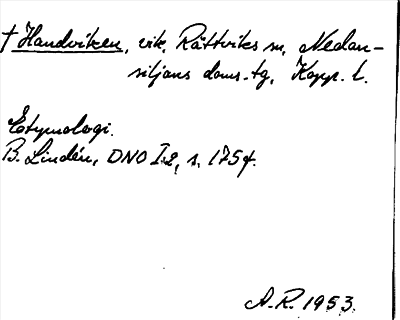 † Handviken, vik, Rättviks sn, Nedan-
siljans doms.-tg, Kopp. l.
Etymologi.
B. Lindén, DNO I:2, s. 175 f.
A.R. 1953.